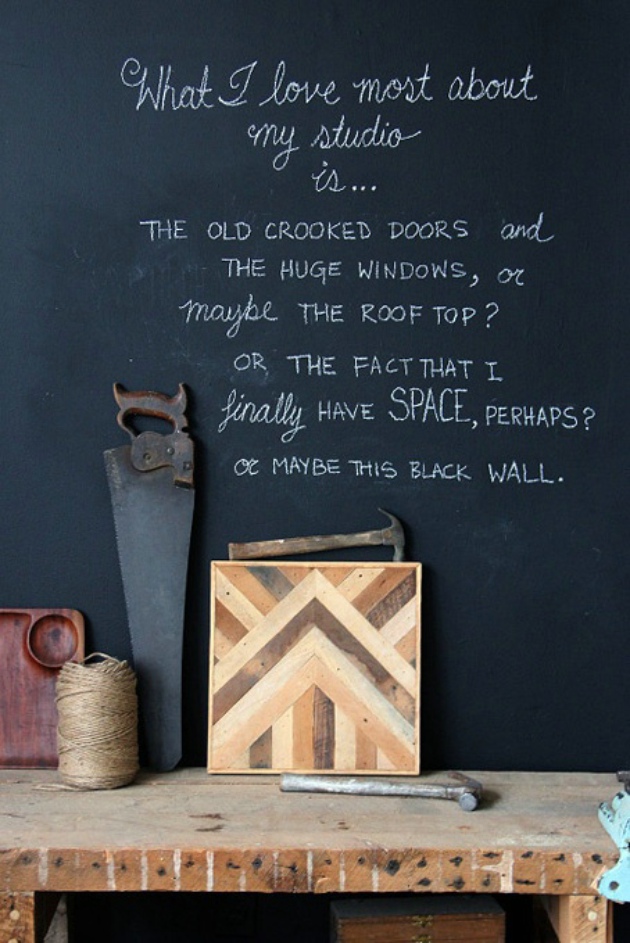 What I love most about
my studio
is...
THE OLD CROOKED DOORS and
THE HUGE WINDOWS, or
maybe THE ROOF TOP?
OR THE FACT THAT I
finally HAVE SPACE, PERHAPS?
or MAYBE THIS BLACK WALL.